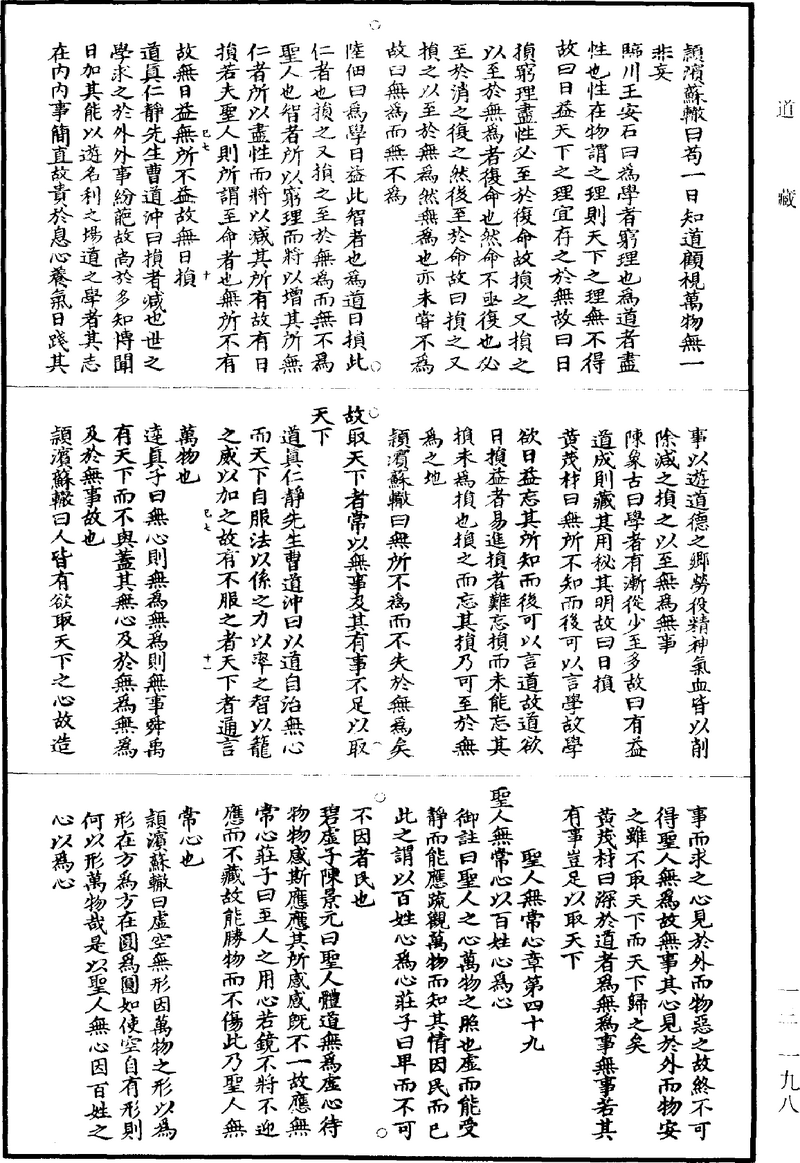 道藏
潁濱蘇轍曰苟一日知道顧視萬物無一
非妄
臨川王安石曰為學者窮理也為道者盡
性也性在物謂之理則天下之理無不得
故曰日益天下之理宜存之於無故曰日
損窮理盡性必至於復命故損之又損之
以至於無為者復命也然命不亟復也必
至於消之復之然後至於命故曰損之又
損之以至於無為然無為也亦未嘗不為
故曰無為而無不為
陸佃曰為學日益此智者也為道日損此
仁者也損之又損之至於無為而無不為
聖人也智者所以窮理而將以增其所無
仁者所以盡性而將以減其所有故有日
損若夫聖人則所謂至命者也無所不有
故無日益無所不益故無日損
道真仁靜先生曹道沖曰損者減也世之
學求之於外外事紛葩故尚於多知博聞
日加其能以遊名利之場道之學者其志
在內內事簡直故責於息心養氣日踐其
事以遊道德之鄉勞役精神氣血皆以削
除減之損之以至無為無事
陳象古曰學者有漸從少至多故曰有益
道成則藏其用秘其明故曰日損
黃茂材曰無所不知而後可以言學故學
欲日益忘其所知而後可以言道故道欲
日損益者易進損者難忘損而未能忘其
損未為損也損之而忘其損乃可至於無
為之地
潁濱蘇轍曰無所不為而不失於無為矣
故取天下者常以無事及其有事不足以取
天下
道真仁靜先生曹道沖曰以道自治無心
而天下自服法以係之力以率之智以籠
之威以加之故有不服之者天下者通言
萬物也
達真子曰無心則無為無為則無事舜禹
有天下而不與蓋其無心及於無為無為
及於無事故也
潁濱蘇轍曰人皆有欲取天下之心故造
事而求之心見於外而物惡之故終不可
得聖人無為故無事其心見於外而物安
之雖不取天下而天下歸之矣
黃茂材曰深於道者為無為事無事若其
有事豈足以取天下
聖人無常心章第四十九
聖人無常心以百姓心為心
御註曰聖人之心萬物之照也虛而能受
靜而能應疏觀萬物而知其情因民而已
此之謂以百姓心為心莊子曰卑而不可
不因者民也
碧虛子陳景元曰聖人體道無為虛心待
物物感斯應應其所感感既不一故應無
常心莊子曰至人之用心若鏡不將不迎
應而不藏故能勝物而不傷此乃聖人無
常心也
潁濱蘇轍曰虛空無形因萬物之形以為
形在方為方在圓為圓如使空自有形則
何以形萬物哉是以聖人無心因百姓之
心以為心
己七 十
己七 十一
一二—一九八